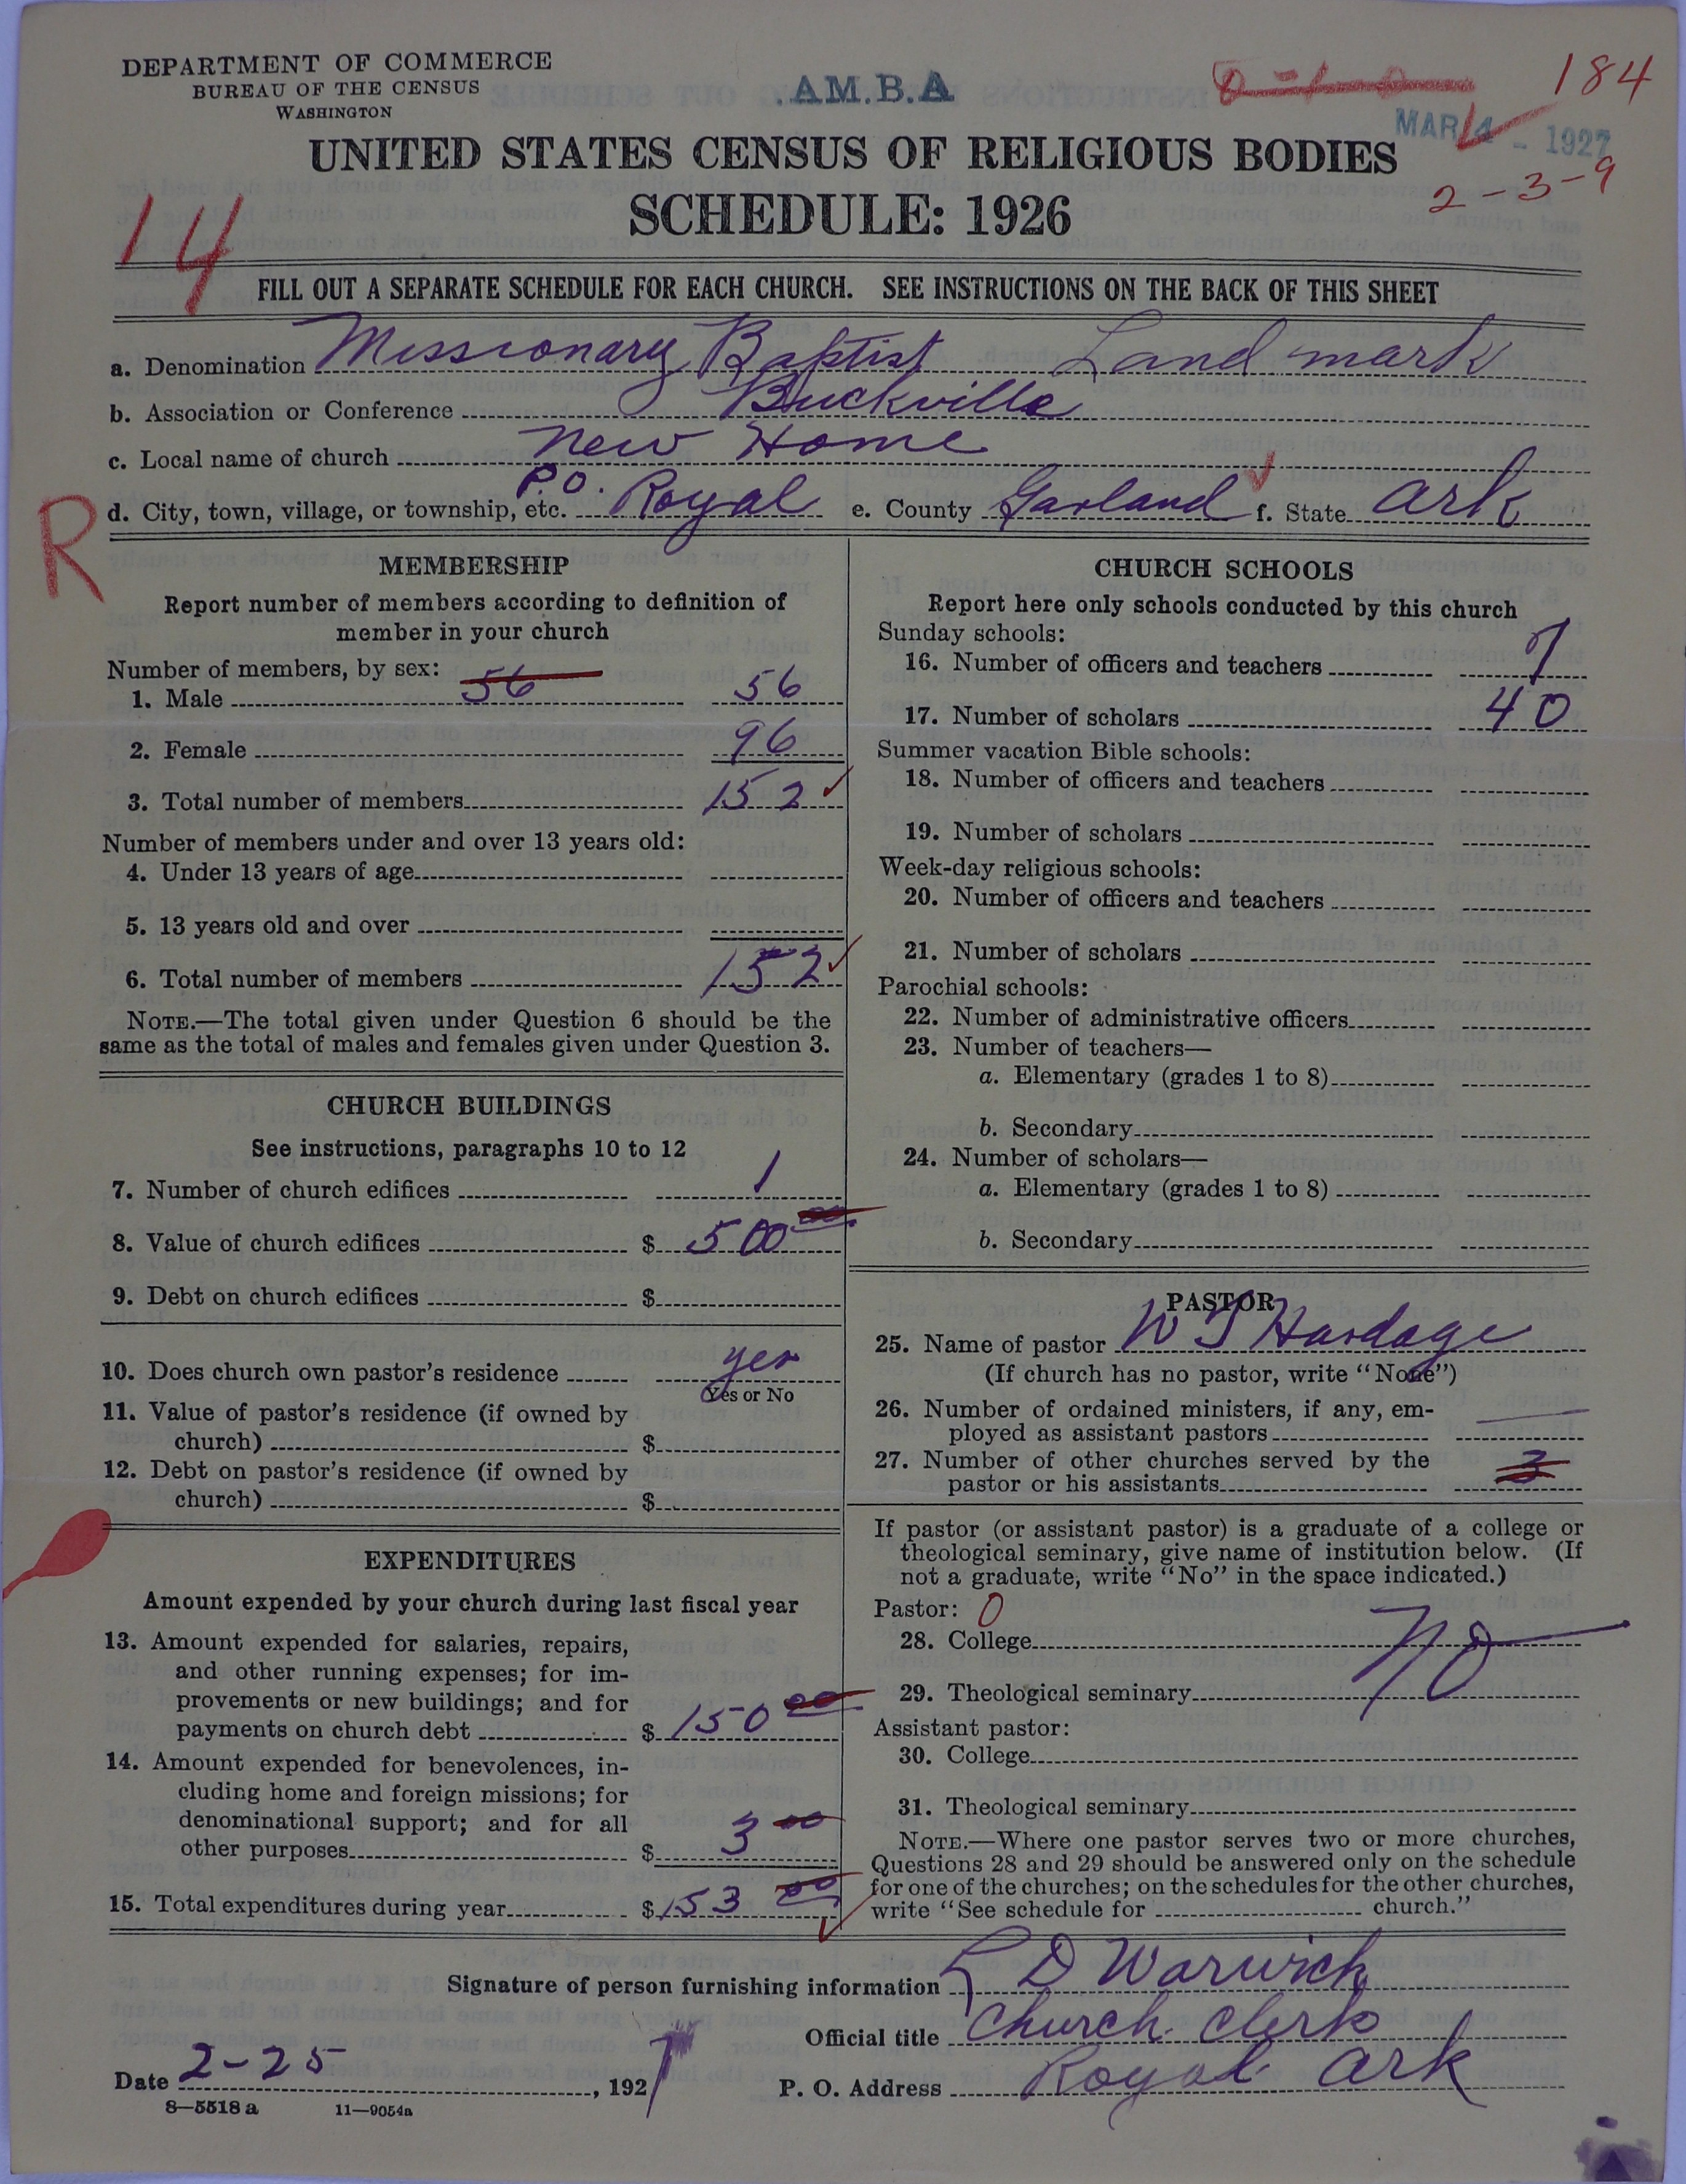 DEPARTMENT OF COMMERCE
BUREAU OF THE CENSUS
WASHINGTON
.AM.B.A
184
MAR 4 - 1927
UNITED STATES CENSUS OF RELIGIOUS BODIES
2-3-9
SCHEDULE: 1926
14
FILL OUT A SEPARATE SCHEDULE FOR EACH CHURCH. SEE INSTRUCTIONS ON THE BACK OF THIS SHEET
a. Denomination Missionary Baptist Land mark
b. Association or Conference Buckville
c. Local name of church New Home
d. City, town, village, or township, etc. P.O. Royal e. County Garland f. State Ark
R
MEMBERSHIP
Report number of members according to definition of
member in your church
Number of members, by sex:
1. Male 56 56
2. Female 96
3. Total number of members 152
Number of members under and over 13 years old:
4. Under 13 years of age
5. 13 years old and over
6. Total number of members 152
NOTE.—The total given under Question 6 should be the
same as the total of males and females given under Question 3.
CHURCH BUILDINGS
See instructions, paragraphs 10 to 12
7. Number of church edifices 1
8. Value of church edifices $ 500 00
9. Debt on church edifices $
10. Does church own pastor's residence yes
Yes or No
11. Value of pastor's residence (if owned by
church) $
12. Debt on pastor's residence (if owned by
church) $
EXPENDITURES
Amount expended by your church during last fiscal year
13. Amount expended for salaries, repairs,
and other running expenses; for im-
provements or new buildings; and for
payments on church debt $ 150 00
14. Amount expended for benevolences, in-
cluding home and foreign missions; for
denominational support; and for all
other purposes $ 3 00
15. Total expenditures during year $ 153 00
CHURCH SCHOOLS
Report here only schools conducted by this church
Sunday schools:
16. Number of officers and teachers 7
17. Number of scholars 40
Summer vacation Bible schools:
18. Number of officers and teachers
19. Number of scholars
Week-day religious schools:
20. Number of officers and teachers
21. Number of scholars
Parochial schools:
22. Number of administrative officers
23. Number of teachers—
a. Elementary (grades 1 to 8)
b. Secondary
24. Number of scholars—
a. Elementary (grades 1 to 8)
b. Secondary
PASTOR
25. Name of pastor W T Hardage
(If church has no pastor, write "None")
26. Number of ordained ministers, if any, em-
ployed as assistant pastors
27. Number of other churches served by the
pastor or his assistants 3
If pastor (or assistant pastor) is a graduate of a college or
theological seminary, give name of institution below. (If
not a graduate, write "No" in the space indicated.)
Pastor: 0
28. College No
29. Theological seminary
Assistant pastor:
30. College
31. Theological seminary
NOTE.—Where one pastor serves two or more churches,
Questions 28 and 29 should be answered only on the schedule
for one of the churches; on the schedules for the other churches,
write "See schedule for church."
Signature of person furnishing information L D Warwick
Official title Church Clerk
Date 2-25, 1927 P. O. Address Royal Ark
8—5518 a 11—9054a